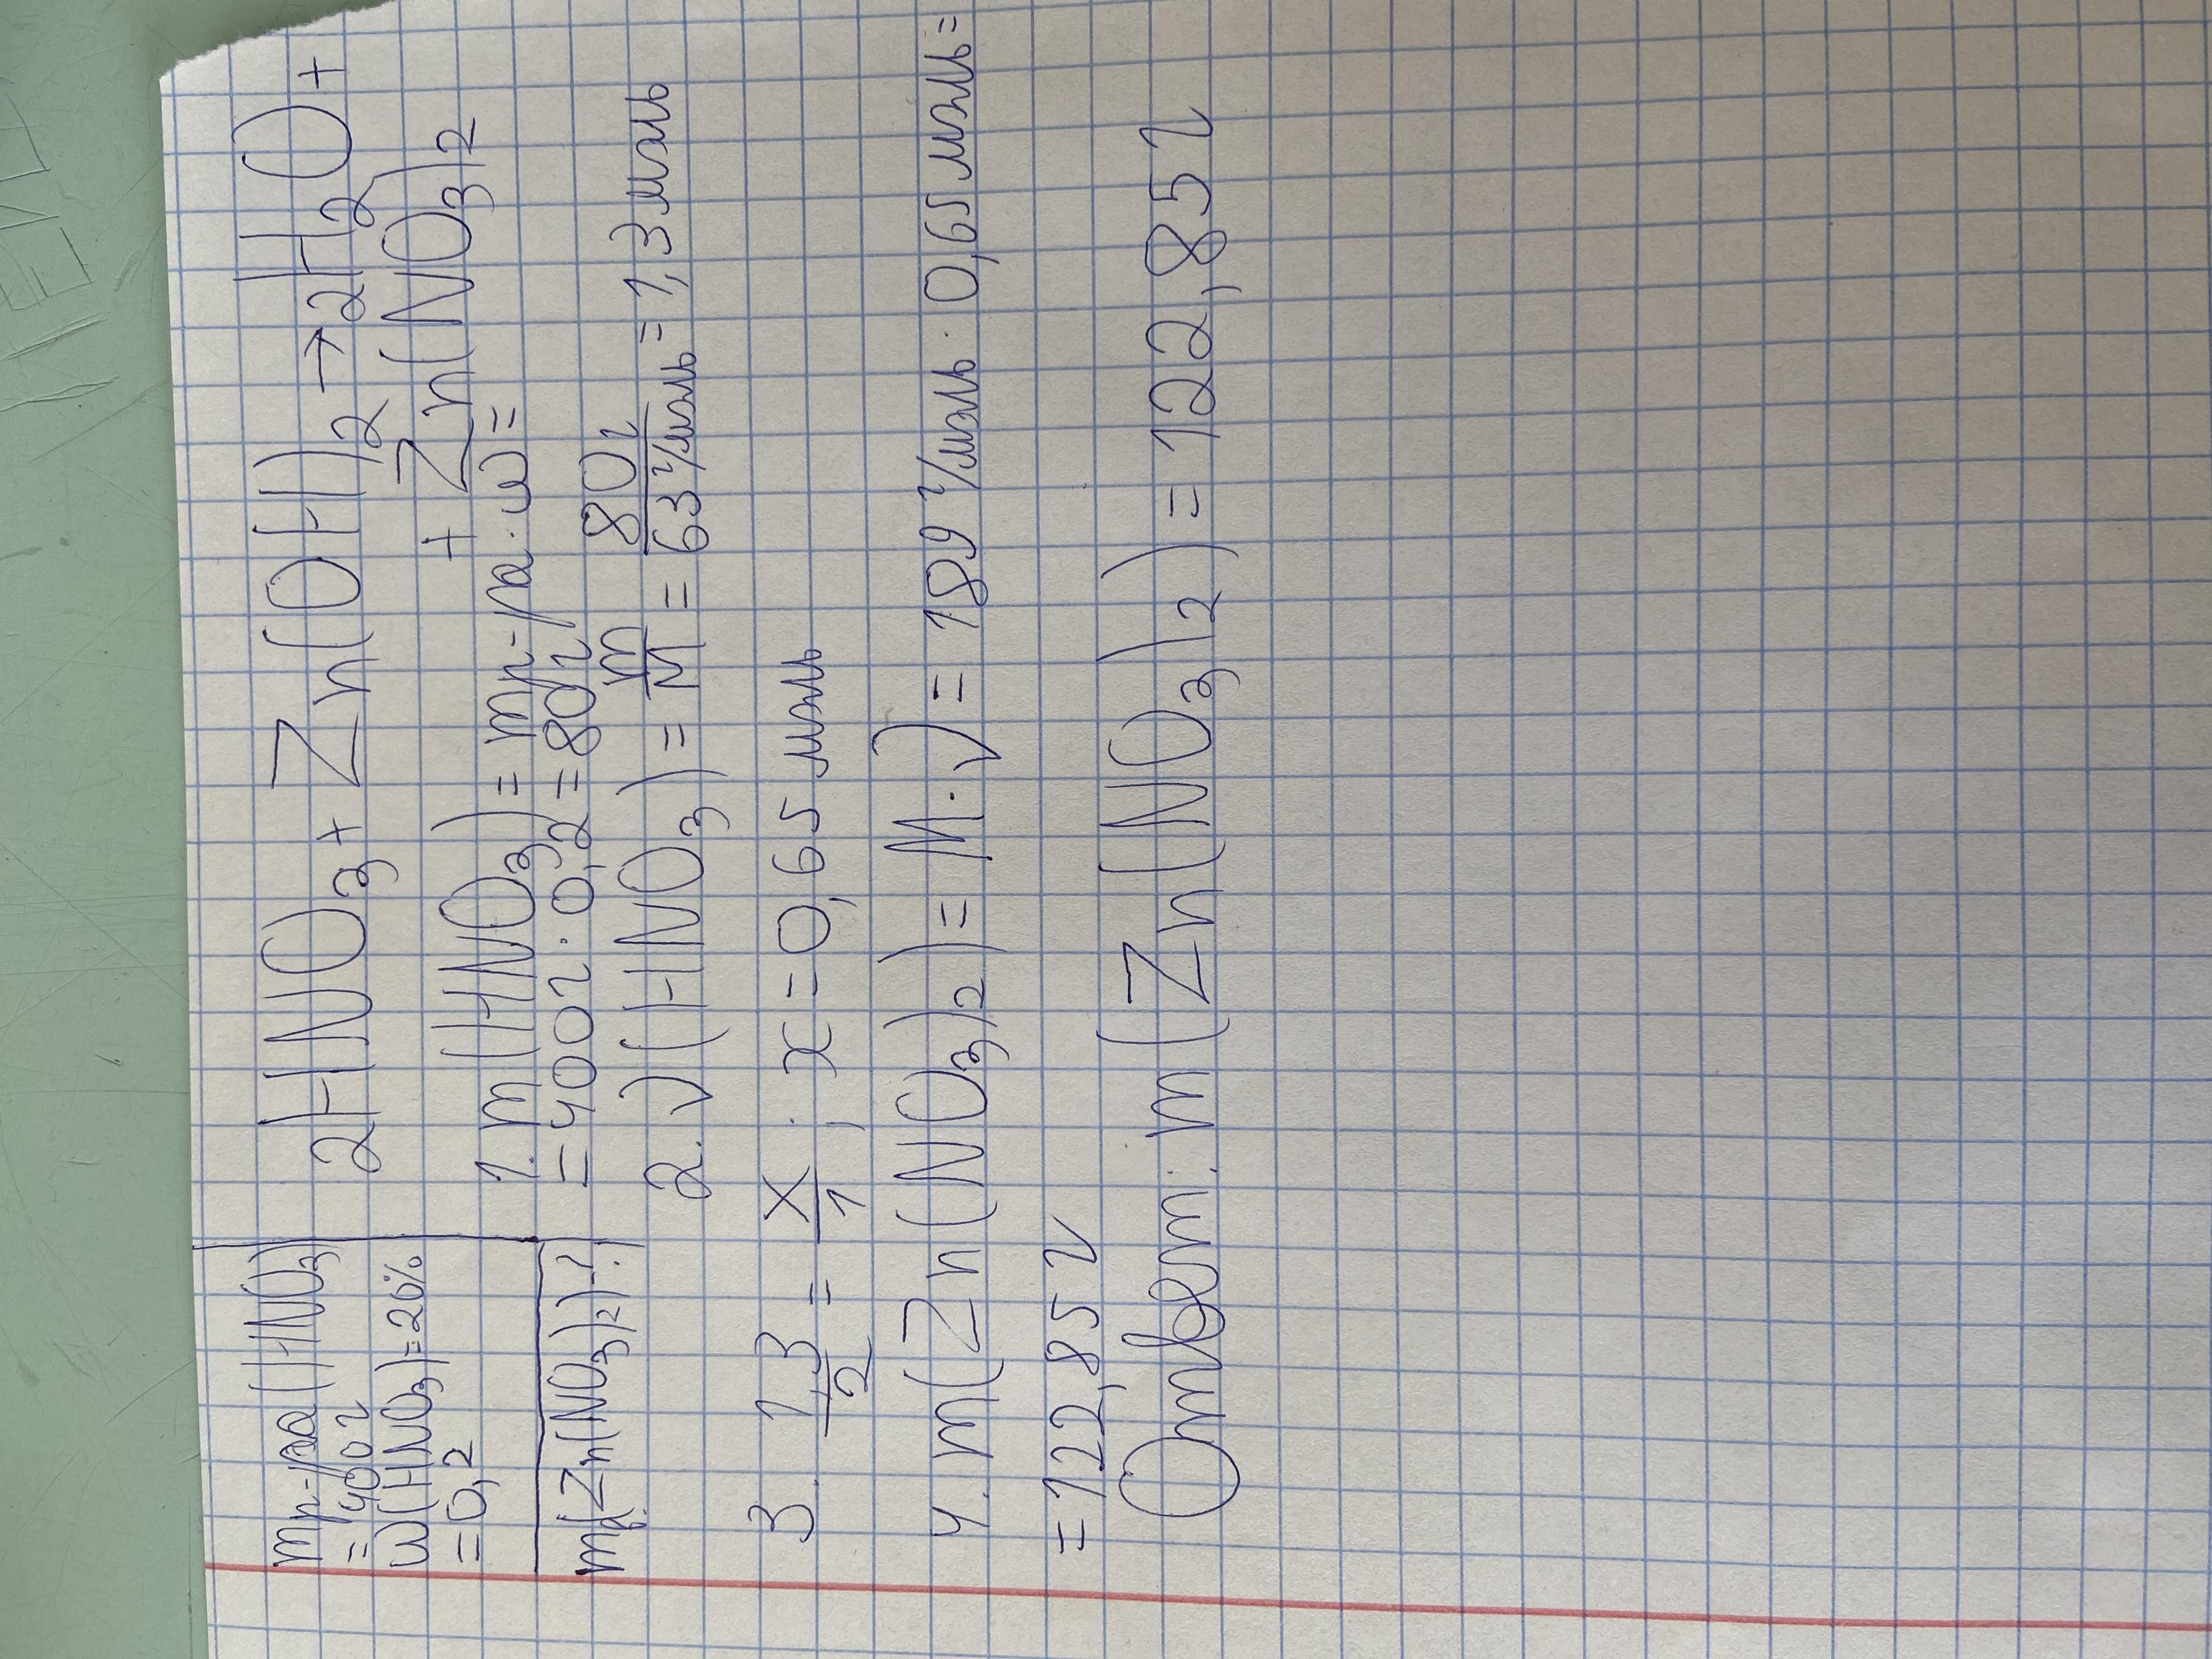 mр-ра(HNO₃)
= 400г
ω(HNO₃)=20%
= 0,2
m(Zn(NO₃)₂)-?
2HNO₃ + Zn(OH)₂ → 2H₂O +
+ Zn(NO₃)₂
1. m(HNO₃) = mр-ра · ω =
= 400г · 0,2 = 80г
2. ν(HNO₃) = m/M = 80г/63г/моль = 1,3 моль
3. 1,3/2 = x/1 ; x = 0,65 моль
4. m(Zn(NO₃)₂) = M · ν = 189 г/моль · 0,65 моль =
= 122,85 г
Ответ: m(Zn(NO₃)₂) = 122,85 г